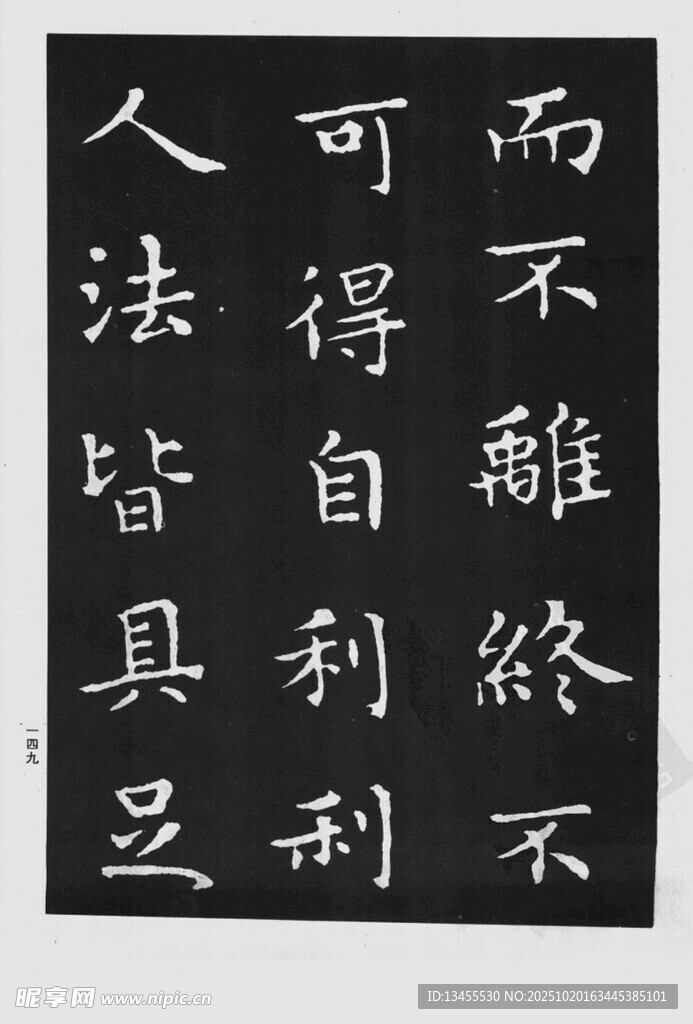 而不離終不
可得自利利
人法皆具足
一四九
昵享网 www.nipic.cn
ID:13455530 NO:20251020163445385101